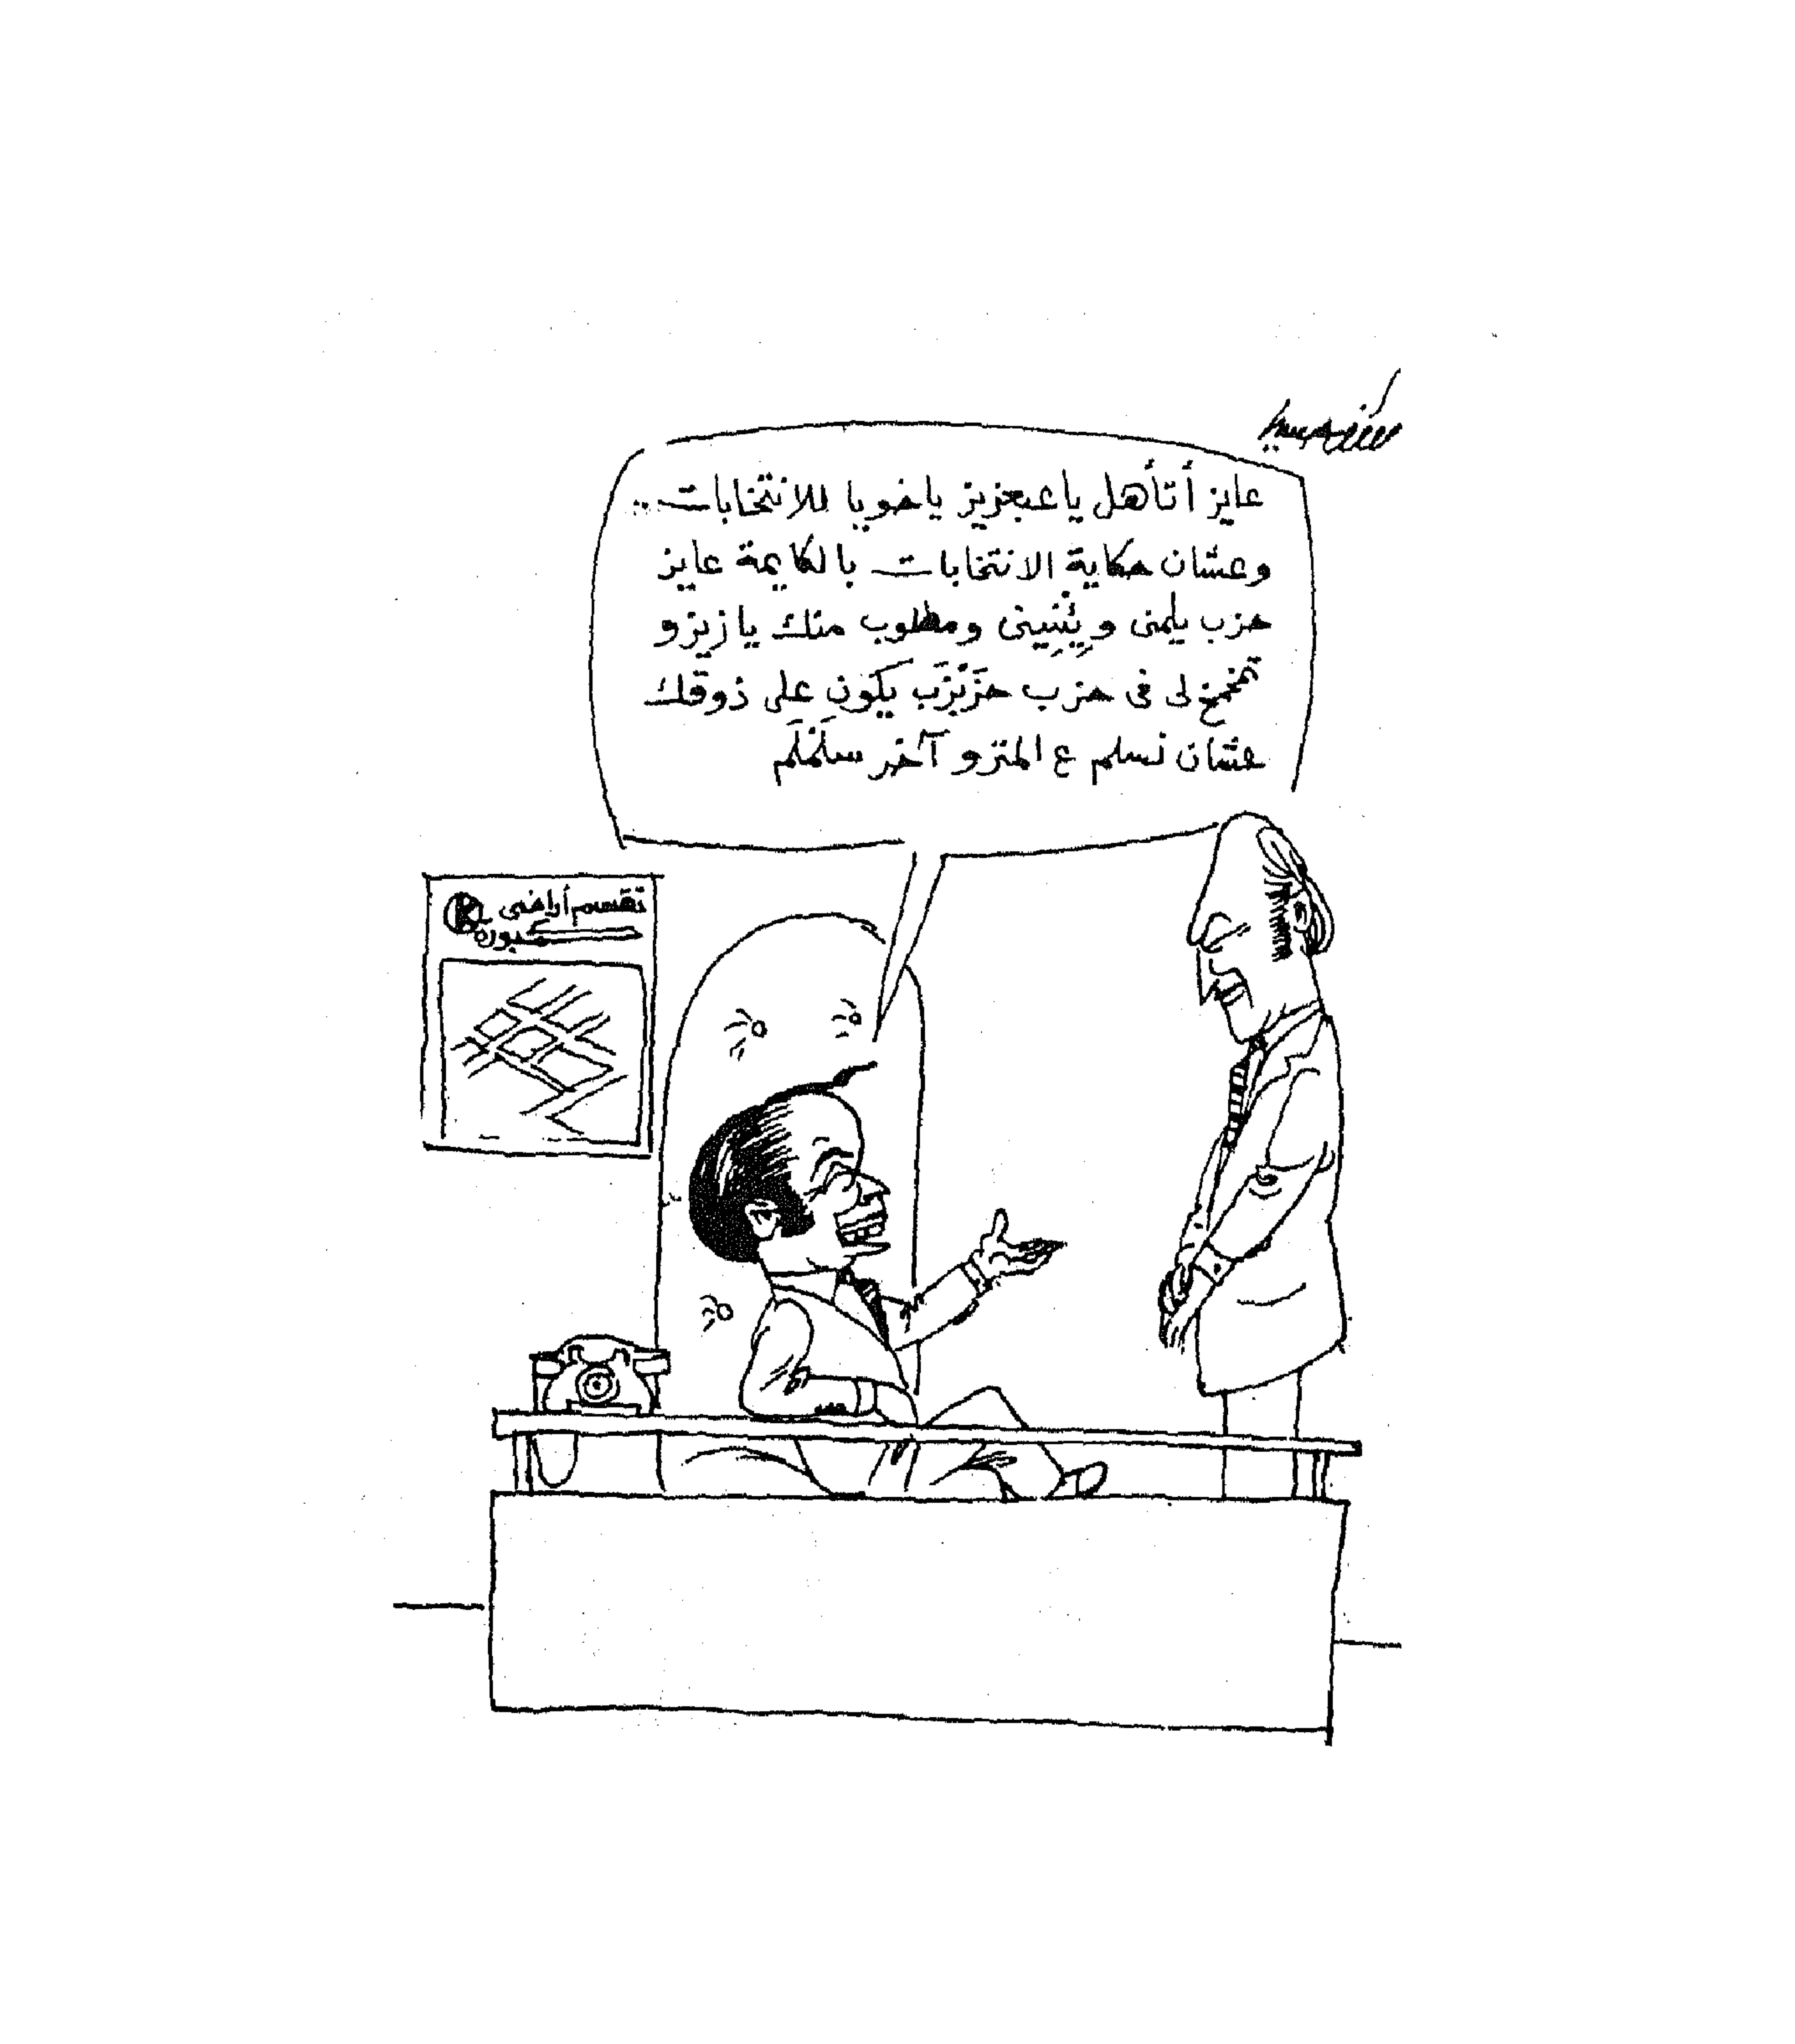 عايز أتأهل يا عبعزيز يا خويا للانتخابات..
وعشان حكاية الانتخابات بالكايمة عايز
حزب يلمنى ويِئْنِينى ومطلوب منك يا زيزو
تمخمخ لى فى حزب حَزَنْزَب يكون على ذوقك
عشان نسلم ع المترو آخر سلَمْلَم
تقسم أراضى
كبورة